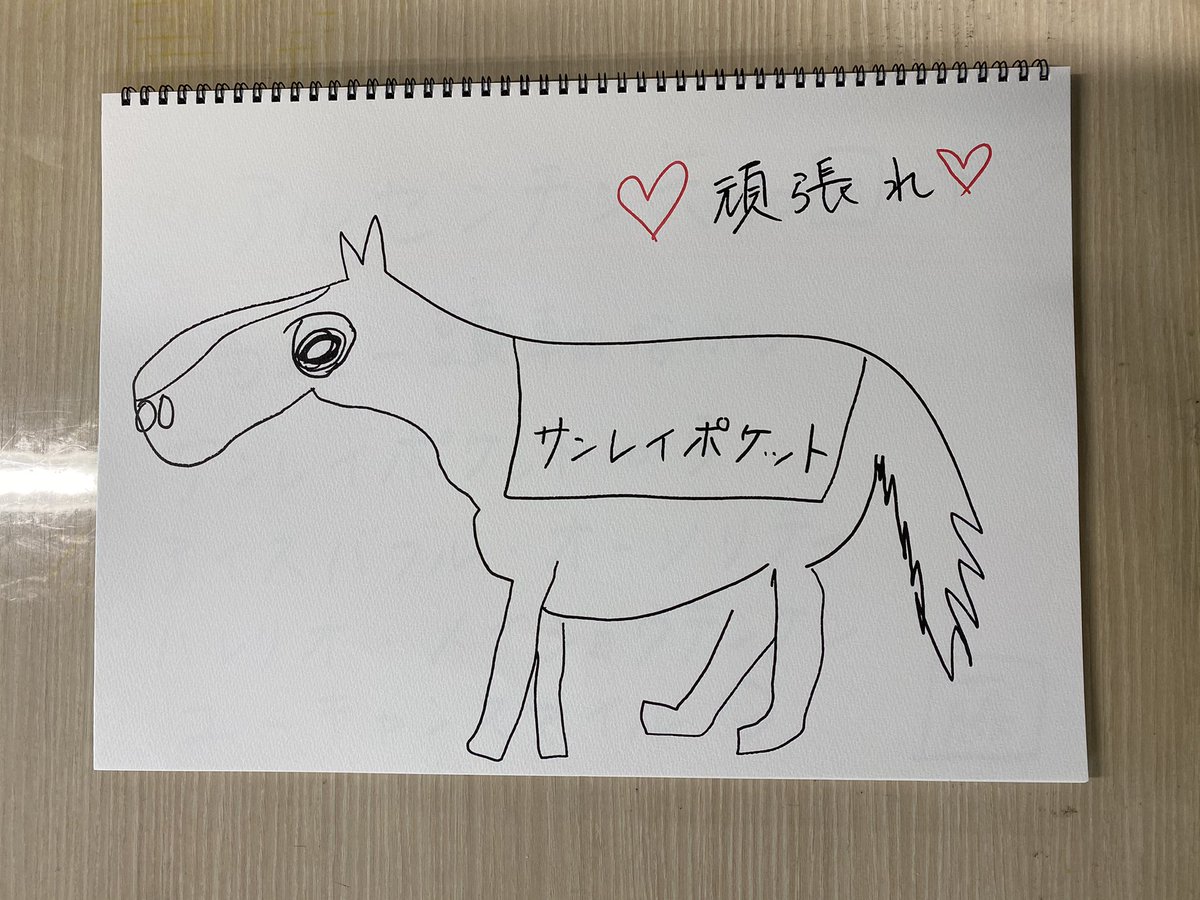 ♡頑張れ♡
サンレイポケット